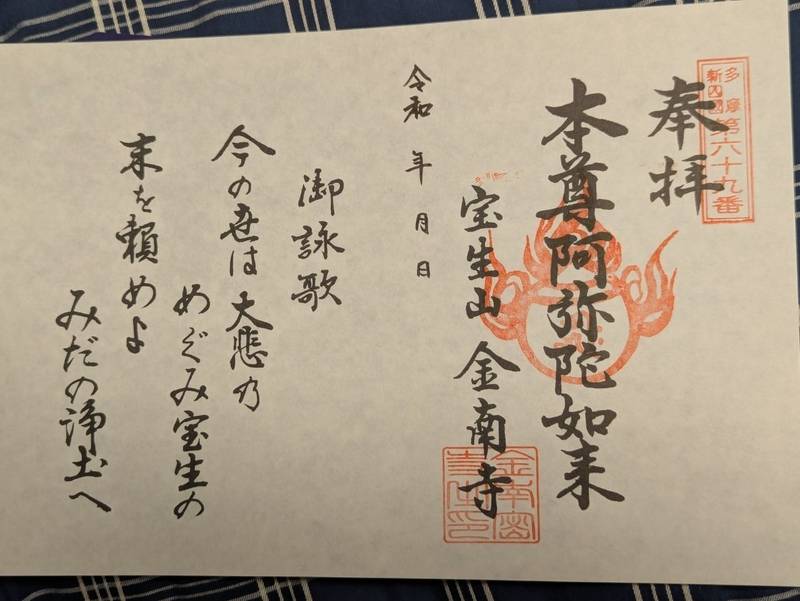 多摩
新四國
第六十九番
奉拝
本尊阿弥陀如来
宝生山 金南寺
令和 年 月 日
御詠歌
今の世は大悲乃
めぐみ宝生の
末を頼めよ
みだの浄土へ